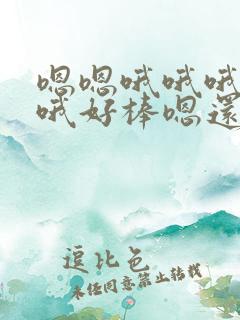 嗯嗯哦哦哦
哦好棒嗯還
逗比色
未经同意禁止转载